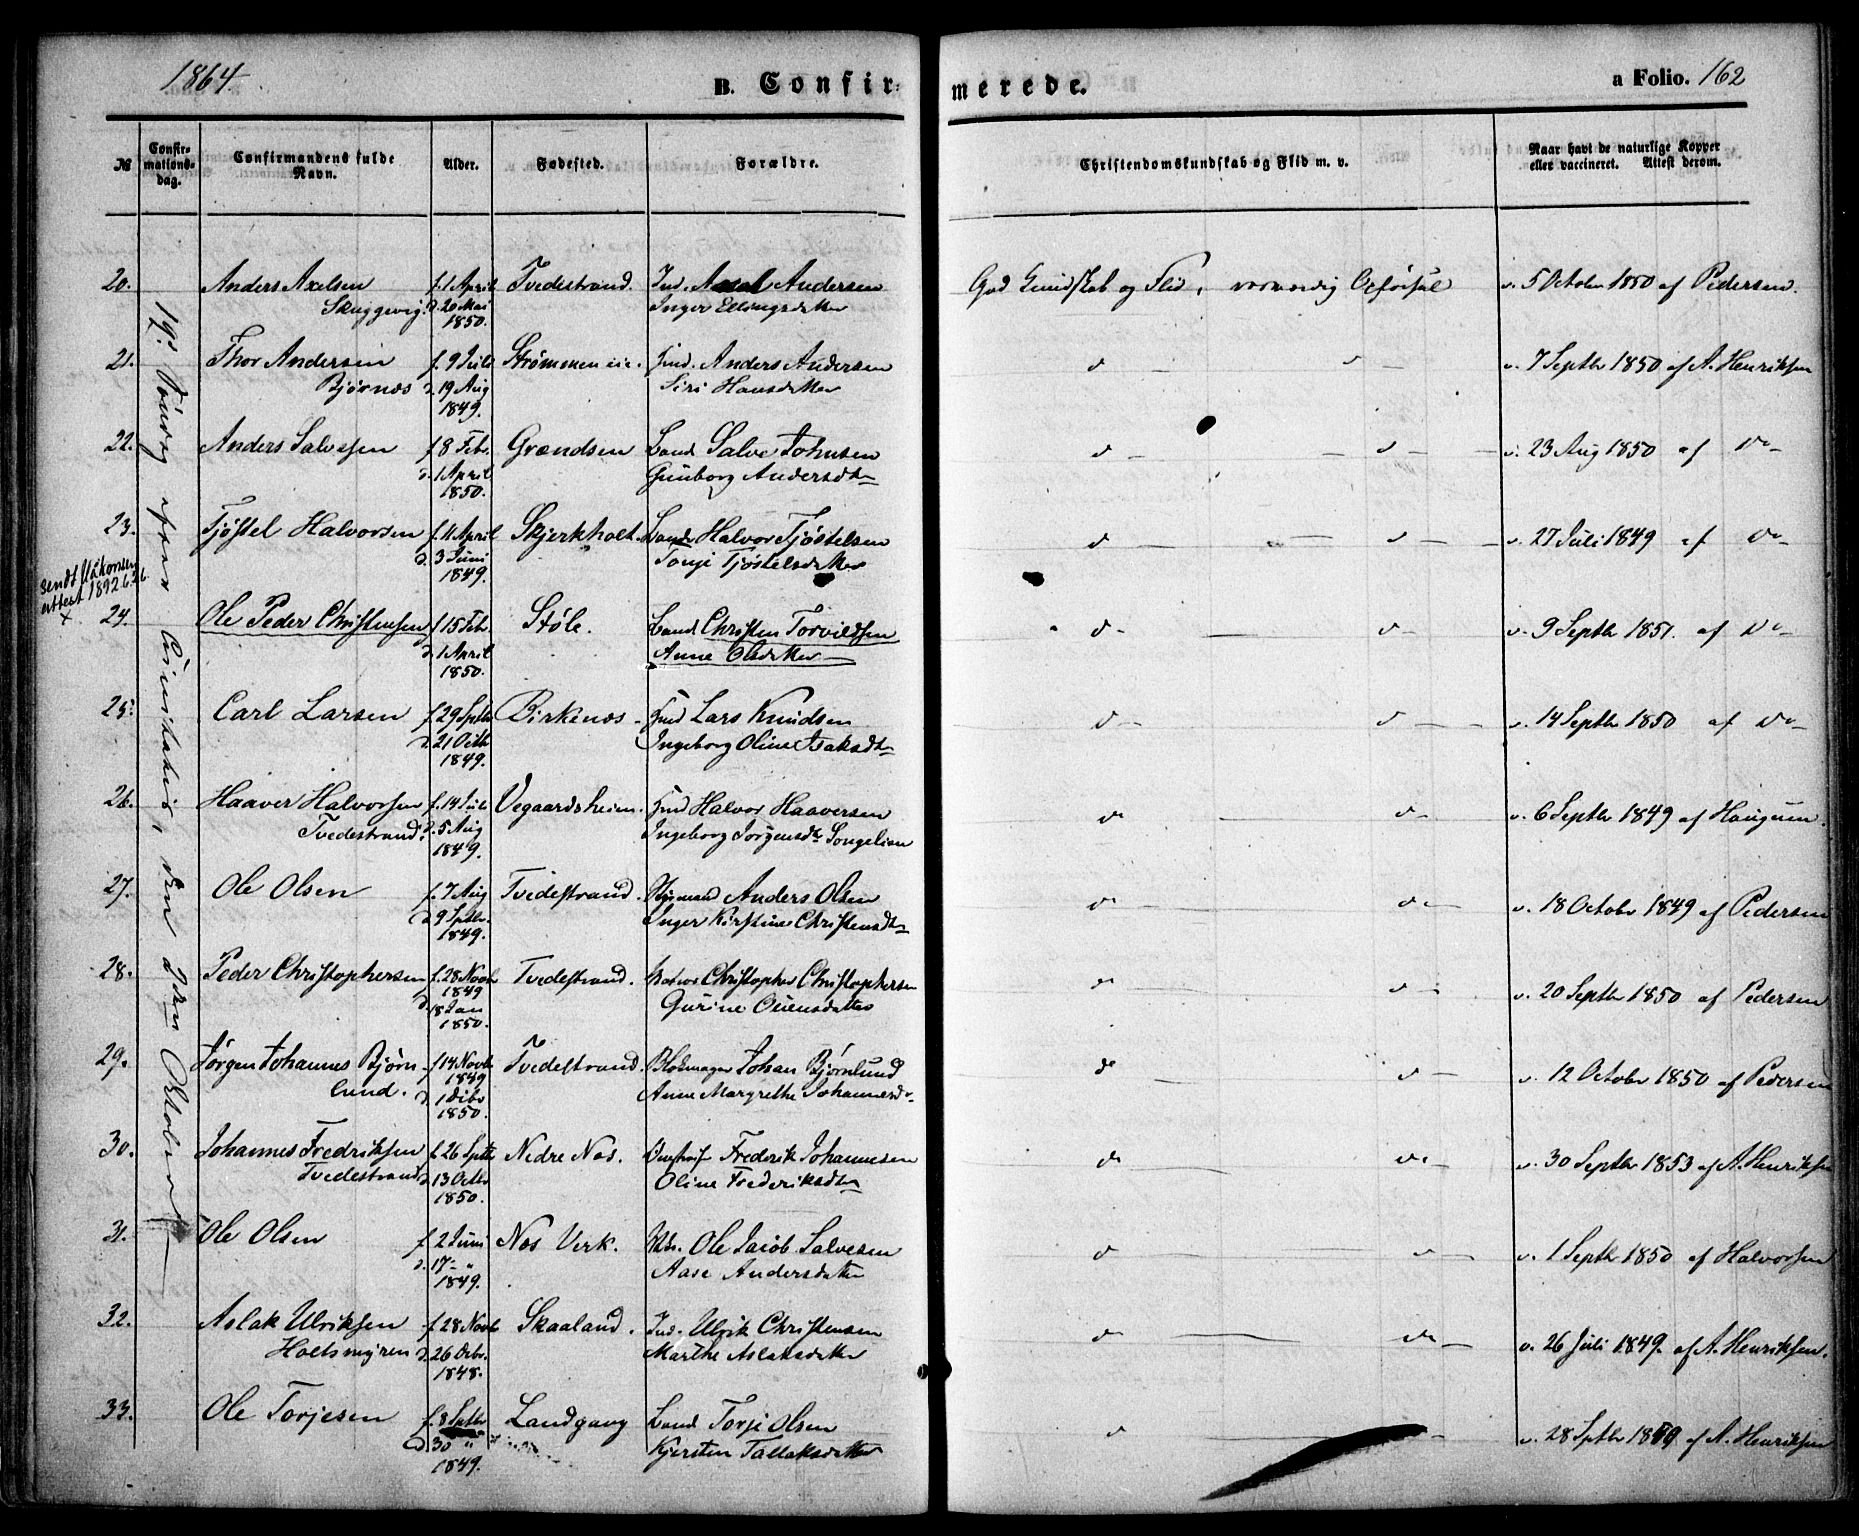 1864.
B. Confir-
merede.
a Folio. 162
№
Confir-
mations-
dag.
Confirmandens fulde
Navn.
Alder.
Fødested.
Forældre.
Christendomskundskab og Flid m. v.
Naar havt de naturlige Kopper
eller vaccineret. Attest derom.
den 2den October
20. Anders Axelsen f. 1 April Tvedestrand. Ind. Axel Andersen God Kundskab og Flid, v. 5 Octobr 1850 af Pedersen.
Skuggevig. d. 20 Mai Inger Ellingsdatter
1850.
21. Thor Andersen f. 9 Juli Strømmen eie. Hmd. Anders Andersen d v. 7 Septbr 1850 af A. Henriksen
Bjørnes d. 19 Aug Siri Hansdatter
1849.
22. Anders Salvesen f. 8 Febr. Grændsen Land Salve Johnsen d — d — v. 23 Aug 1850 af do
d. 1 April Gunborg Andersdtr
1850.
23. Tjøstel Halvorsen f. 11 April Skjerkholt. Halvor Tjøstelsen d — d — v. 27 Juli 1849 af do
d. 3 Juni Tonje Tjøstelsdatter
1849.
sendt
attest 1892 6/26.
x
24. Ole Peder Christensen f. 15 Febr. Støle. Land Christen Torvildsen d — d — v. 9 Septbr 1851. af do
d. 1 April Anne Olsdatter
1850.
25. Carl Larsen f. 29 Septbr Birkenes Hmd Lars Knudsen d — d — v. 14 Septbr 1850 af do
d. 21 Octb Ingeborg Oline Isaksdtr
1849.
26. Haaver Halvorsen f. 14 Juli Vegaardsheien. Hmd Halvor Haaversen do — do — v. 6 Septbr 1849 af Haugum.
Tvedestrand. d. 5 Aug Ingeborg Jørgensdtr Songelien
1849.
27. Ole Olsen f. 7 Aug Tvedestrand. Anders Olsen do — do — v. 18 Octobr 1849 af Pedersen
d. 9 Septbr. Inger Kirstine Christensdtr
1849.
28. Peder Christophersen f. 28 Novb Tvedestrand. Matros Christopher Christophersen do — do — v. 20 Septbr 1850 af Pedersen
1849 Gurine Ouensdatter
d. 18 Jan
1850.
29. Jørgen Johannes Bjørn- f. 14 Novb Tvedestrand. Blokmager Johan Bjørnlund do — d — v. 12 Octobr 1850 af Pedersen
lund. 1849 Anne Margrethe Johannesd
1850.
30. Johannes Fredriksen f. 26 Septb Nedre Nes. Frederik Johannesen do — do — v. 30 Septbr 1853 af A. Henriksen
Tvedestrand d. 13 Octbr Oline Frederiksdtr
1850.
31. Ole Olsen f. 2 Juni Nes Verk. Ole Jacob Salvesen d — d — v. 1 Septbr 1850 af Halvorsen
d. 17 — " Aase Andersdatter
1849.
32. Aslak Ulriksen f. 28 Novb Skaaland. Ind. Ulrik Christensen do — do — v. 26 Juli 1849. af A. Henriksen.
Holtsmyren d. 26 Decbr. Marthe Aslaksdatter
1848.
33. Ole Torjesen f. 8 Septbr Landgang Land Torje Olsen d — v. 28 Septbr 1849 af A. Henriksen
d. 30 " Kjersten Tallaksdatter
1849.